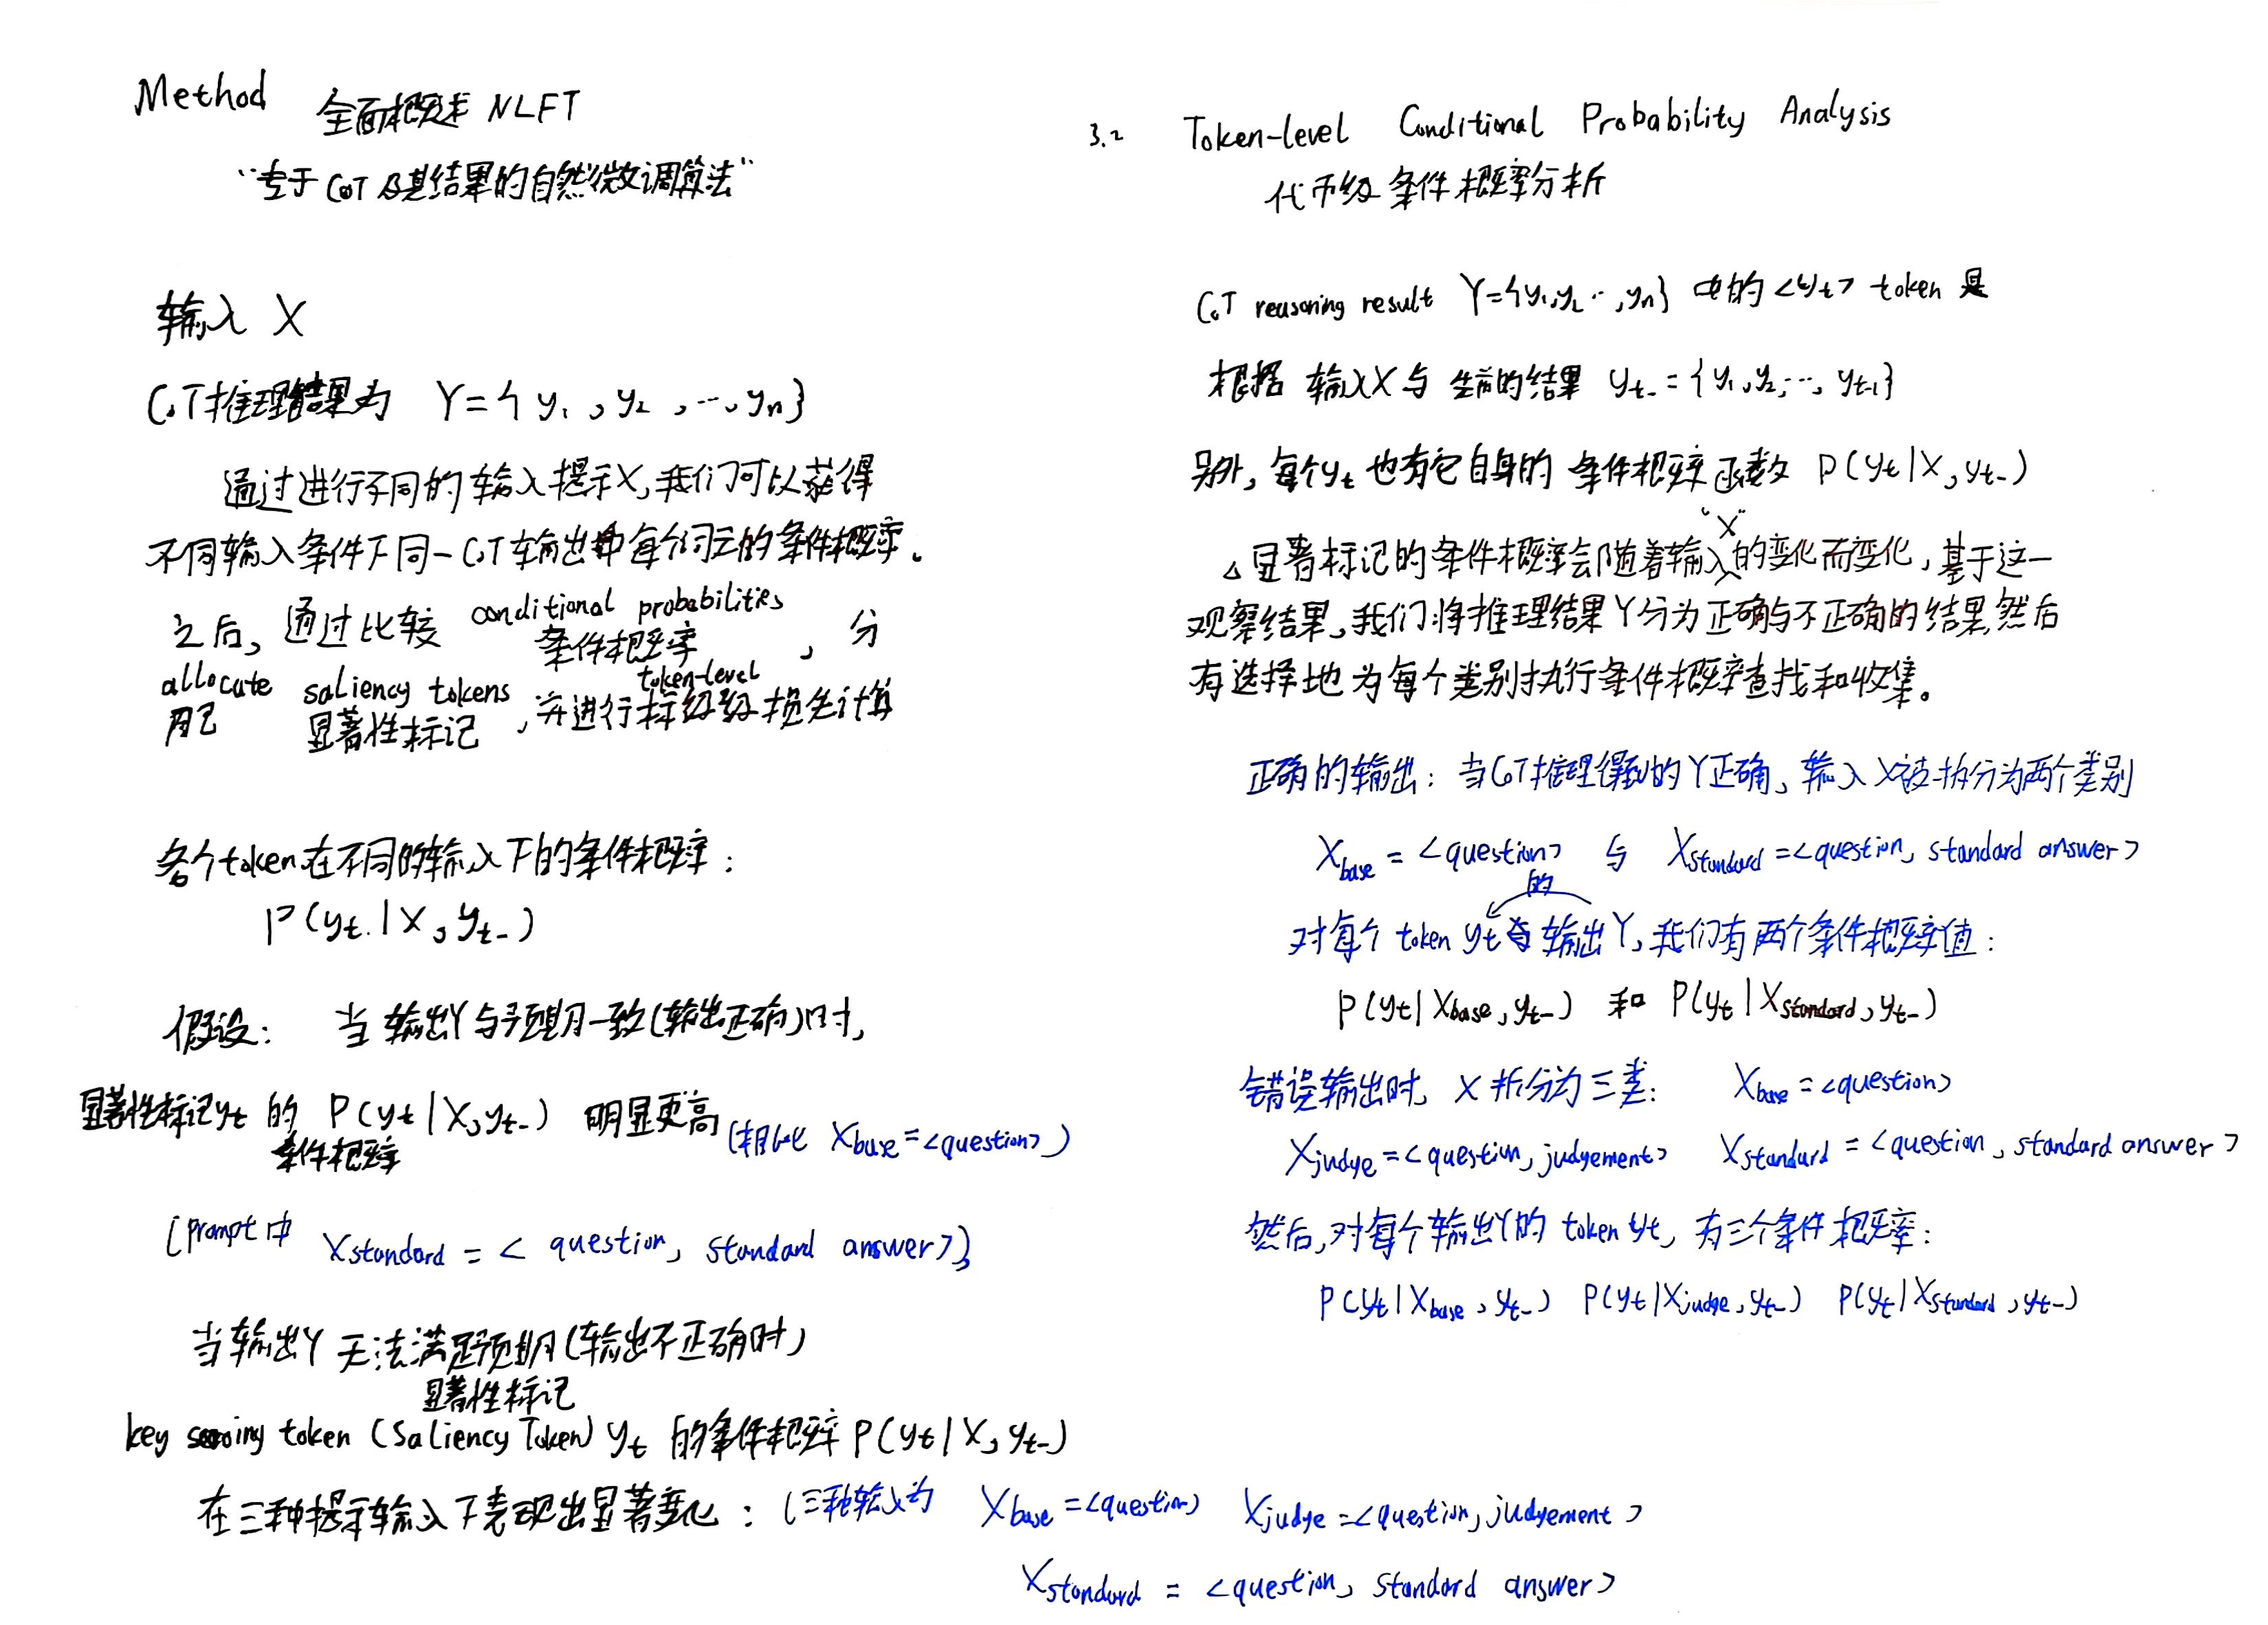 Method 全面概述 NLFT
“专于 CoT 及其结果的自然微调算法”
输入 X
CoT推理结果为 Y={y₁,y₂,…,yₙ}
通过进行不同的输入提示X,我们可以获得
不同输入条件下同一CoT输出中每个词元的条件概率。
之后,通过比较 conditional probabilities
条件概率 , 分
allocate saliency tokens token-level
配 显著性标记 ,并进行标级损失计算
各个token在不同的输入下的条件概率:
P(yₜ|X,yₜ₋)
假设: 当输出Y与预期一致(输出正确)时,
显著性标记yₜ 的 P(yₜ|X,yₜ₋) 明显更高(相比 X_base=<question>)
条件概率
(prompt中 X_standard = < question, standard answer>)
当输出Y 无法满足预期(输出不正确时)
显著性标记
key token (Saliency Token) yₜ 的条件概率 P(yₜ|X,yₜ₋)
在三种提示输入下表现出显著变化: (三种输入为 X_base=<question> X_judge=<question, judgement>
X_standard = <question, standard answer>
3.2 Token-level Conditional Probability Analysis
代币级条件概率分析
CoT reasoning result Y={y₁,y₂…,yₙ} 中的 <yₜ> token 是
根据 输入X与 当前的结果 yₜ₋={y₁,y₂,…,yₜ₋₁}
另外, 每个yₜ 也有它自身的 条件概率函数 P(yₜ|X,yₜ₋)
“X”
△显著标记的条件概率会随着输入的变化而变化,基于这一
观察结果,我们将推理结果Y分为正确与不正确的结果,然后
有选择地为每个类别执行条件概率查找和收集。
正确的输出: 当CoT推理得到的Y正确, 输入X被拆分为两个类别
X_base = <question> 与 X_standard=<question, standard answer>
的
对每个 token yₜ 输出Y,我们有两个条件概率值:
P(yₜ|X_base,yₜ₋) 和 P(yₜ|X_standard,yₜ₋)
错误输出时, X拆分为三类: X_base=<question>
X_judge=<question, judgement> X_standard = <question, standard answer>
然后,对每个输出Y的 token yₜ, 有三个条件概率:
P(yₜ|X_base,yₜ₋) P(yₜ|X_judge,yₜ₋) P(yₜ|X_standard,yₜ₋)